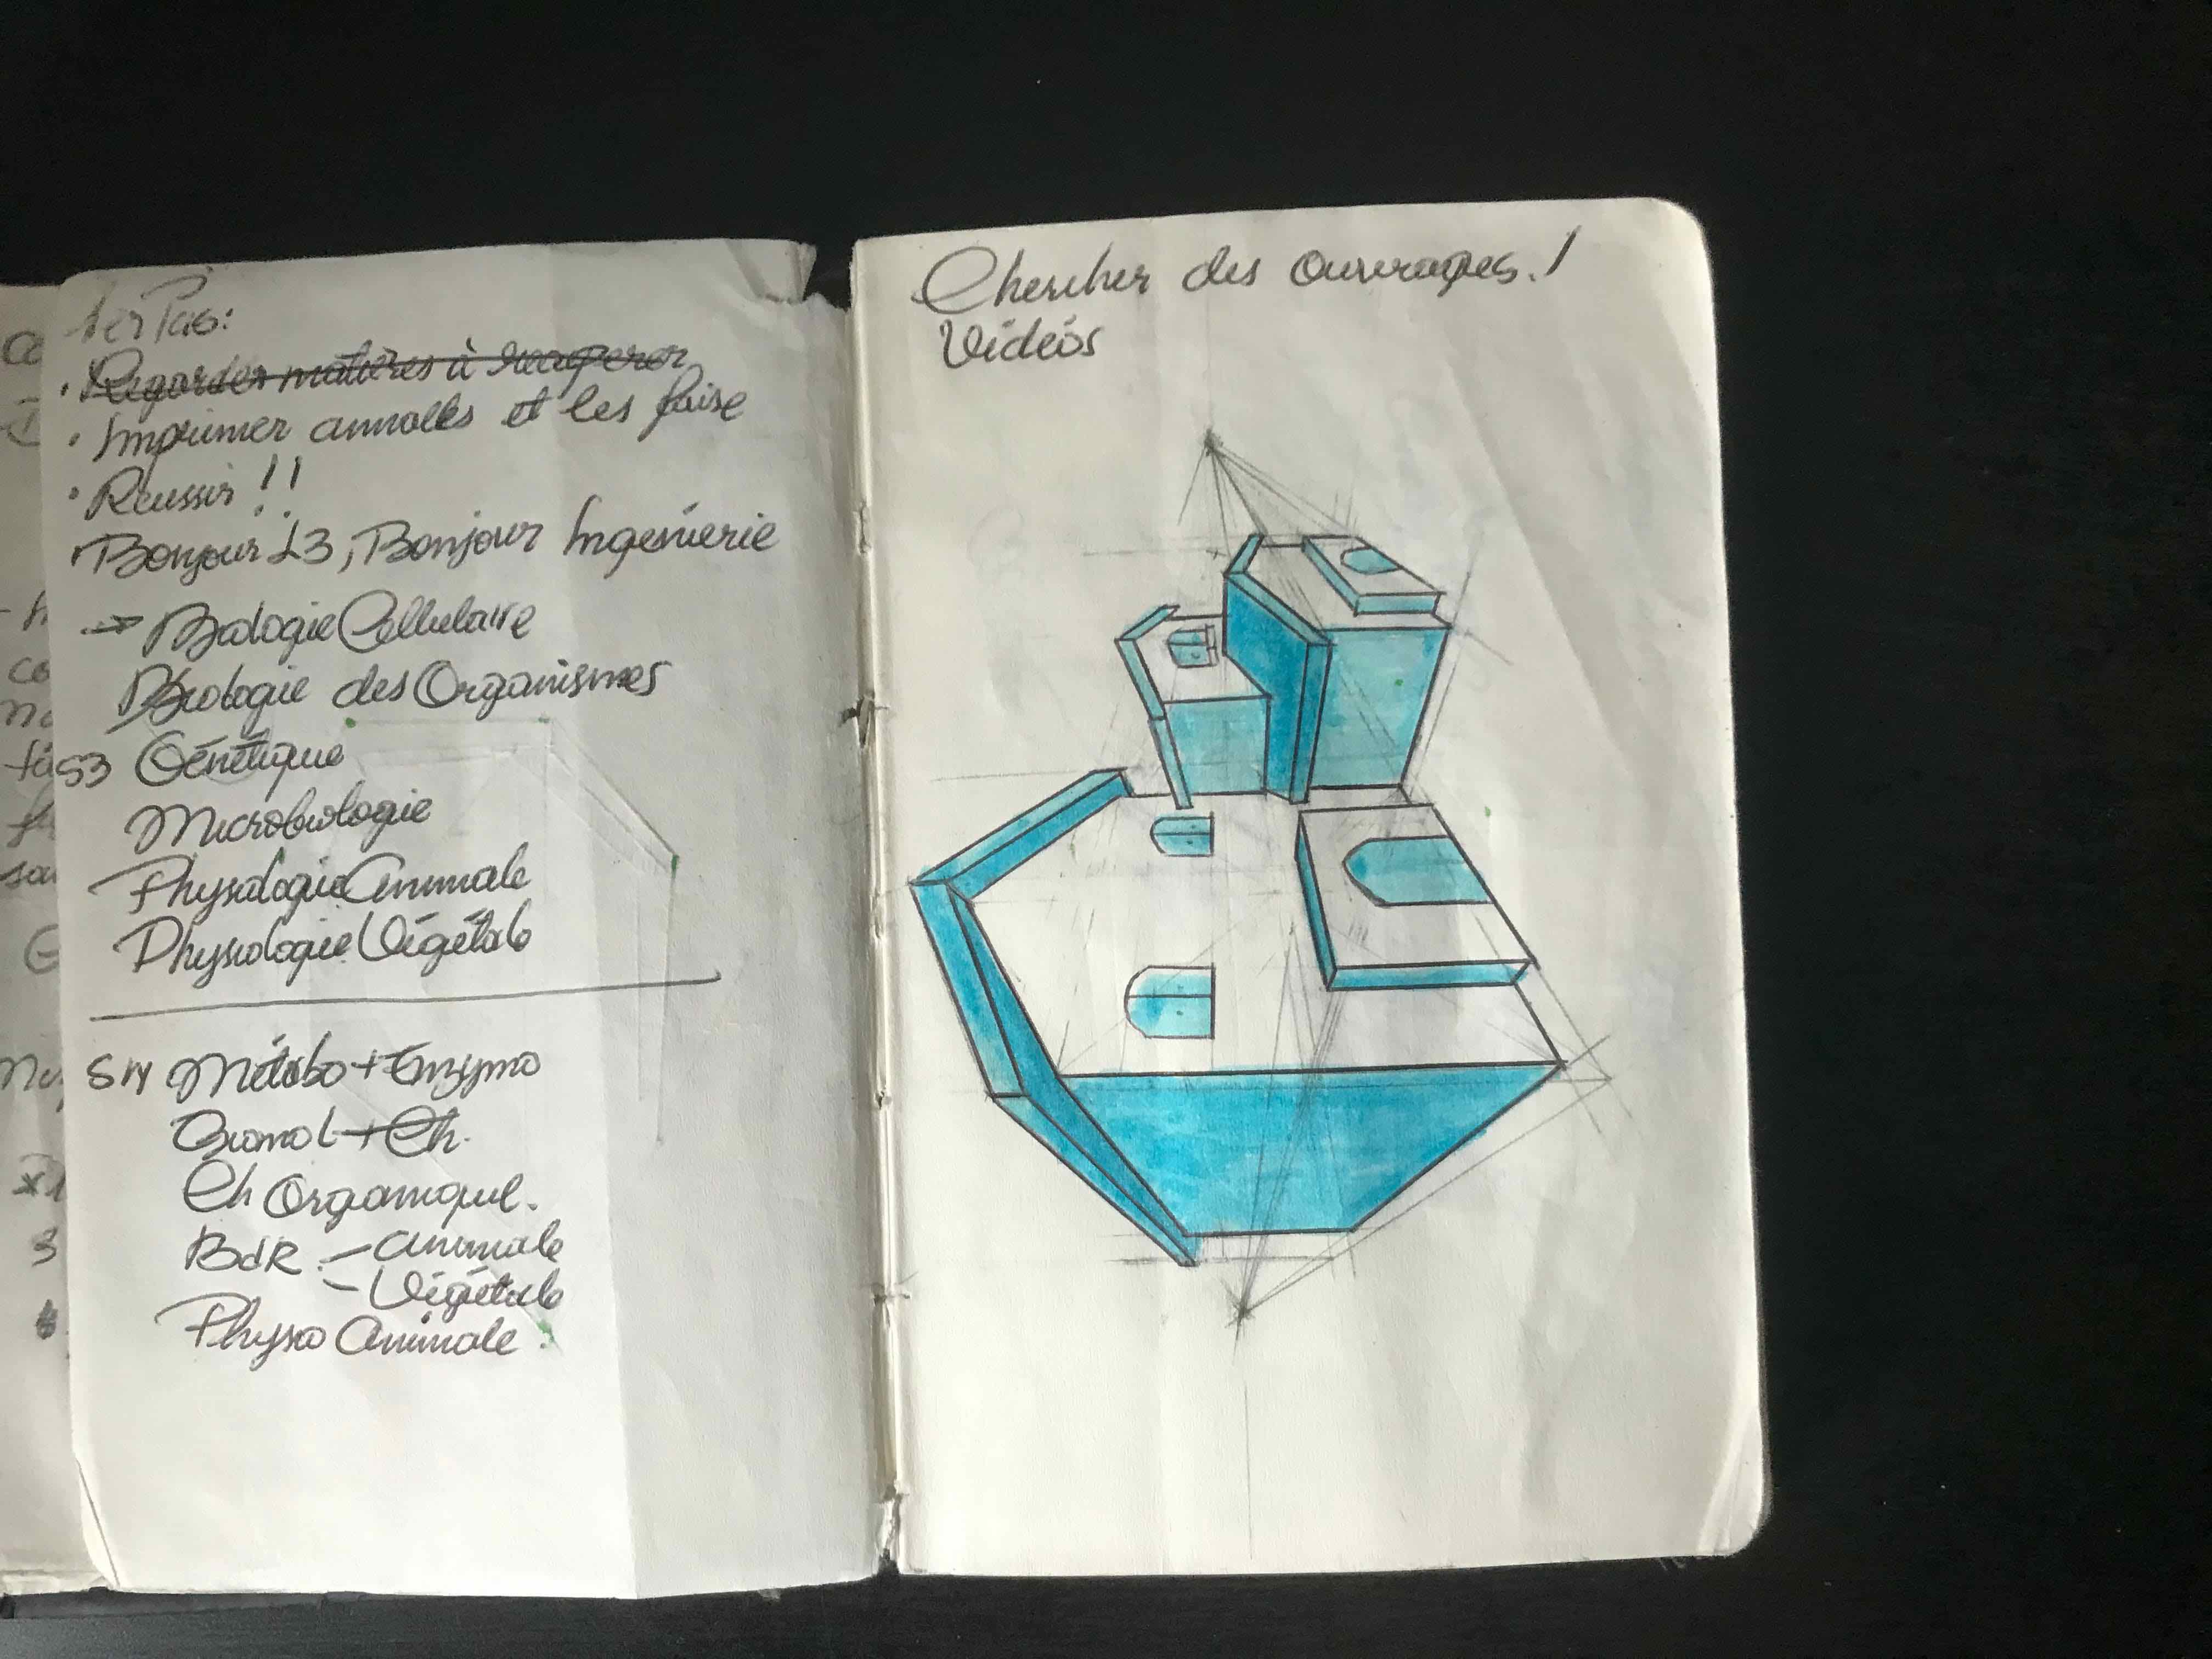 1er Pas:
· Regarder matières à recuperer
· Imprimer annales et les faire
· Reussir !!
· Bonjour L3, Bonjour Ingenierie
→ Biologie Cellulaire
Biologie des Organismes
S3 Génétique
Microbiologie
Physiologie Animale
Physiologie Végétale
Métabo + Enzymo
Biomol + Ch.
Ch Organique.
BdR - Animale
- Végétale
Physio Animale
Chercher des ouvrages. !
Vidéos